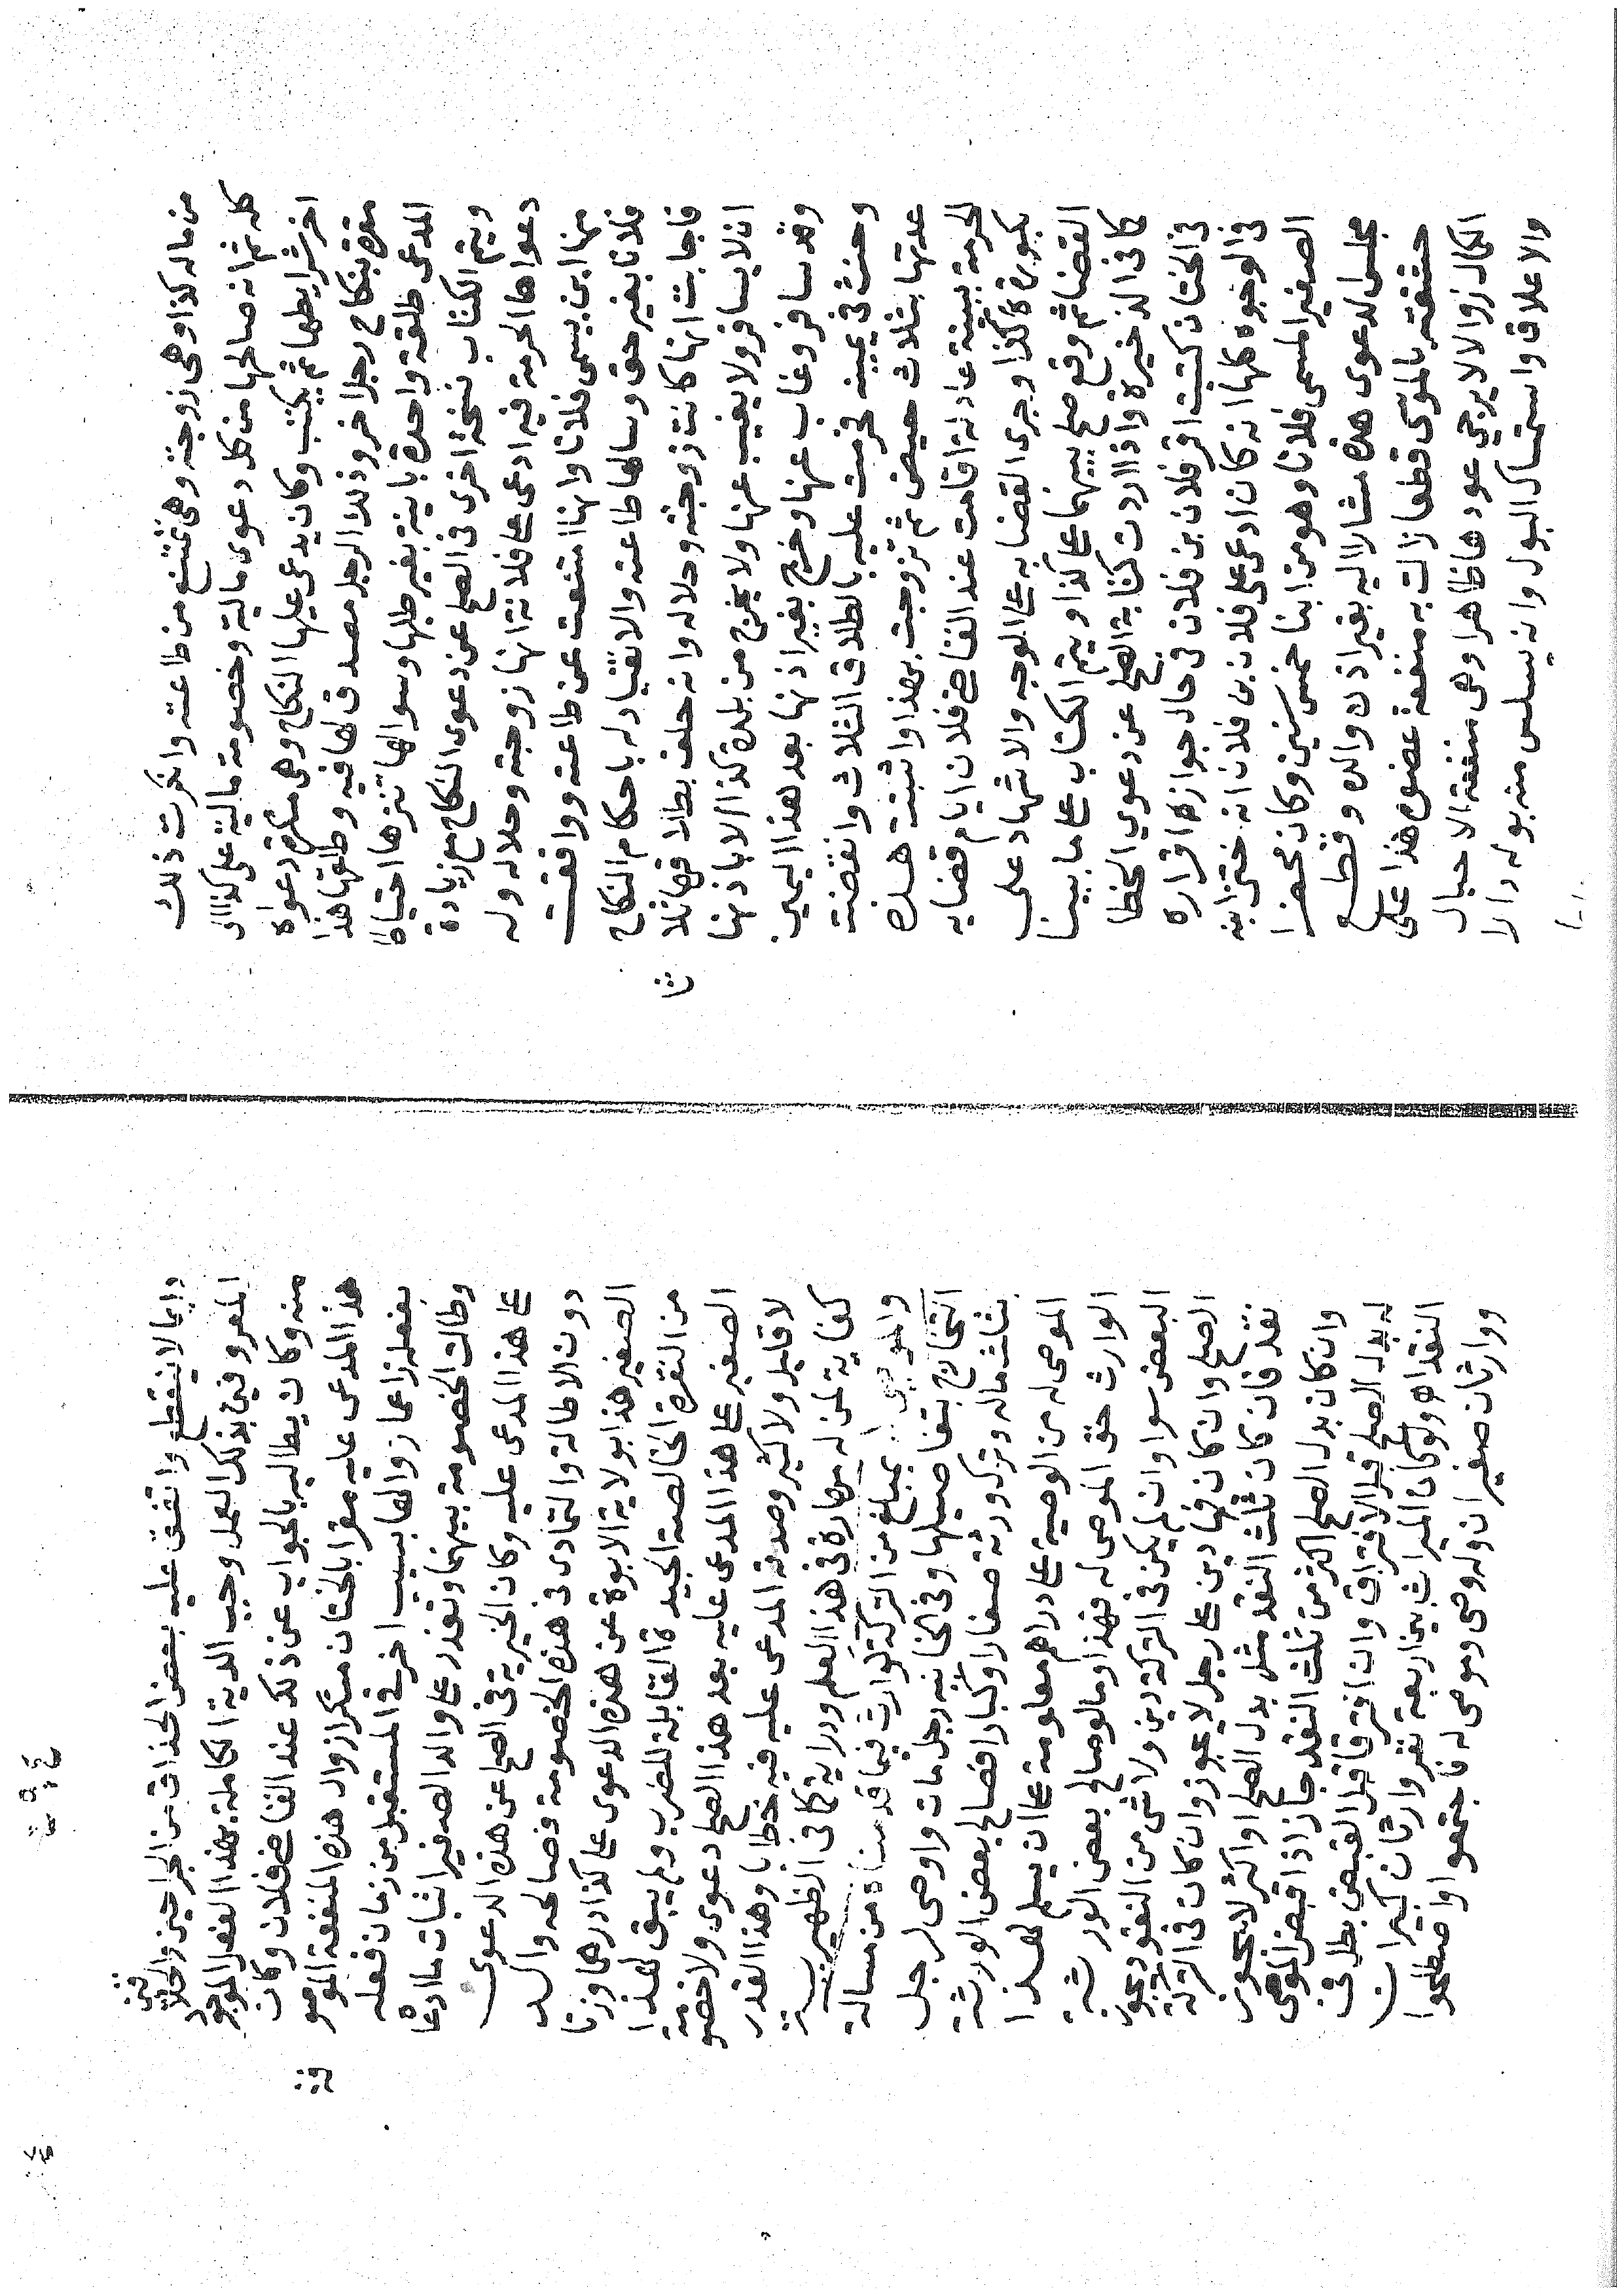 من ماله كذا وهى زوجته وهى تمتنع من طاعته وانكرت ذلك
كله ثم انه صالحها من كل دعوى مالية وخصومة مالية على كذا الى
اخر شرايطها ثم يكتب وكان يدعى عليها النكاح وهى منكرة دعواه
مقرة بنكاح رجل اخر وذلك الرجل مصدق لها فيه وطلقها هذا
المدعى طلقة واحدة باينة بغير طلبها وسوالها تنزها احتياطا
ويتم الكتاب نسخة اخرى فى الصلح عن دعوى النكاح مع زيادة
دعواها الحرمة فيه ادعى على فلانة انها زوجته وحلاله وله
منها ابن يسمى فلانا وانها امتنعت عن طاعته ووافقت
فلانا بغير حق وسالها طاعته والانقياد له باحكام النكاح
فاجابت انها كانت زوجته وحلاله وانه حلف بطلاقها ثلاثا
ان لا يسافر ولا يغيب عنها ولا يخرج من بلدة كذا الا باذنها
وقد سافر وغاب عنها وخرج بغير اذنها بعد هذا اليمين
وحنث فى يمينه فحرمت عليه بالطلاق الثلاث وانقضت
عدتها بثلاث حيض ثم تزوجت بهذا واثبتت هذه
الحرمة ببينة عادلة اقامت عند القاضى فلان ايام قضايه
بكورة كذا وجرى القضا به على الوجه والاشهاد على
القضا ثم وقع صلح بينهما على كذا ويتم الكتاب على ما بينا
كما فى الذخيرة واذا اردت كتابة الصلح عن دعوي الخطا
فى الختان كتبت اقر فلان بن فلان فى حال جواز اقراره
فى الوجوه كلها انه كان ادعى على فلان بن فلان انه ختن ابنه
الصغير المسمى فلانا وهو من ابنا خمس سنين وكان محضرا
مجلس الدعوى هذه مشارا اليه بغير اذن والده وقطع
حشفته بالموسى قطعا زالت به منفعة عضوه هذا على
الكمال زوالا لا يرجي عودها ظاهرا وهى منفعة الاحبال
والاعلاق واستمساك البول وانه يسلس منه بوله دالا
دايما لا ينقطع واتفق عليه بعض الحذاق من الجراحين والختانين
المعروفين بذلك العمل وجب الدية الكاملة بهذا الفعل الموجود
منه وكان يطالبه بالجواب عن ذلك عند القاضى فلان وكان
هذا المدعى عليه مقرا بالختان منكرا زوال هذه المنفعة الموصوفة
بفعله زاعما زوالها بسبب اخر فى المستقبل من زمان فعله
وطالت الخصومة بينهما وتعذر على والد الصغير اثبات ما ادعا
على هذا المدعى عليه وكان الخيرية فى الصلح عن هذه الدعوى
دون الاطالة والتمادى فى هذه الخصومة فصالحه والد
الصغير هذا بولاية الابوة عن هذه الدعوى على كذا درهما وزنا
من النقرة الخالصة الجيدة القابلة للضرب ولم يبق لهذا
الصغير على هذا المدعى عليه بعد هذا الصلح دعوى ولا خصومة
لا قليل ولا كثير وصدقه المدعى عليه فيه خطابا وهذا القدر
كفاية لمن له مهارة فى هذا العلم ودراية كما فى الظهيرية
بمبلغ من التركة لوارث فيما قدمناه من مسالة
التخارج بتفاصيلها وفى الخانية رجل مات واوصى لرجل
بثلث ماله وترك ورثة صغارا وكبارا فصالح بعض الورثة
الموصى له من الوصية على دراهم معلومة على ان يسلم لهذا
الوارث حق الموصى له فهذا وما لو صالح بعض الورثة
البعض سوا وان لم يكن فى التركة دين ولا شى من النقود يجوز
الصلح وان كان فيها دين على رجل لا يجوز وان كان فى التركة
نقد فان كان ثلث النقد مثل بدل الصلح او اكثر لا يجوز
وان كان بدل الصلح اكثر من ثلث النقد جاز اذا قبض الموصى
له بدل الصلح قبل الافتراق وان افترقا قبل القبض بطل فى
النقد اه ولو كان الميراث بين اربعة نفر وارثان كبيران
ووارثان صغيران وله وصى وموصى له فاجتمعوا واصطلحوا